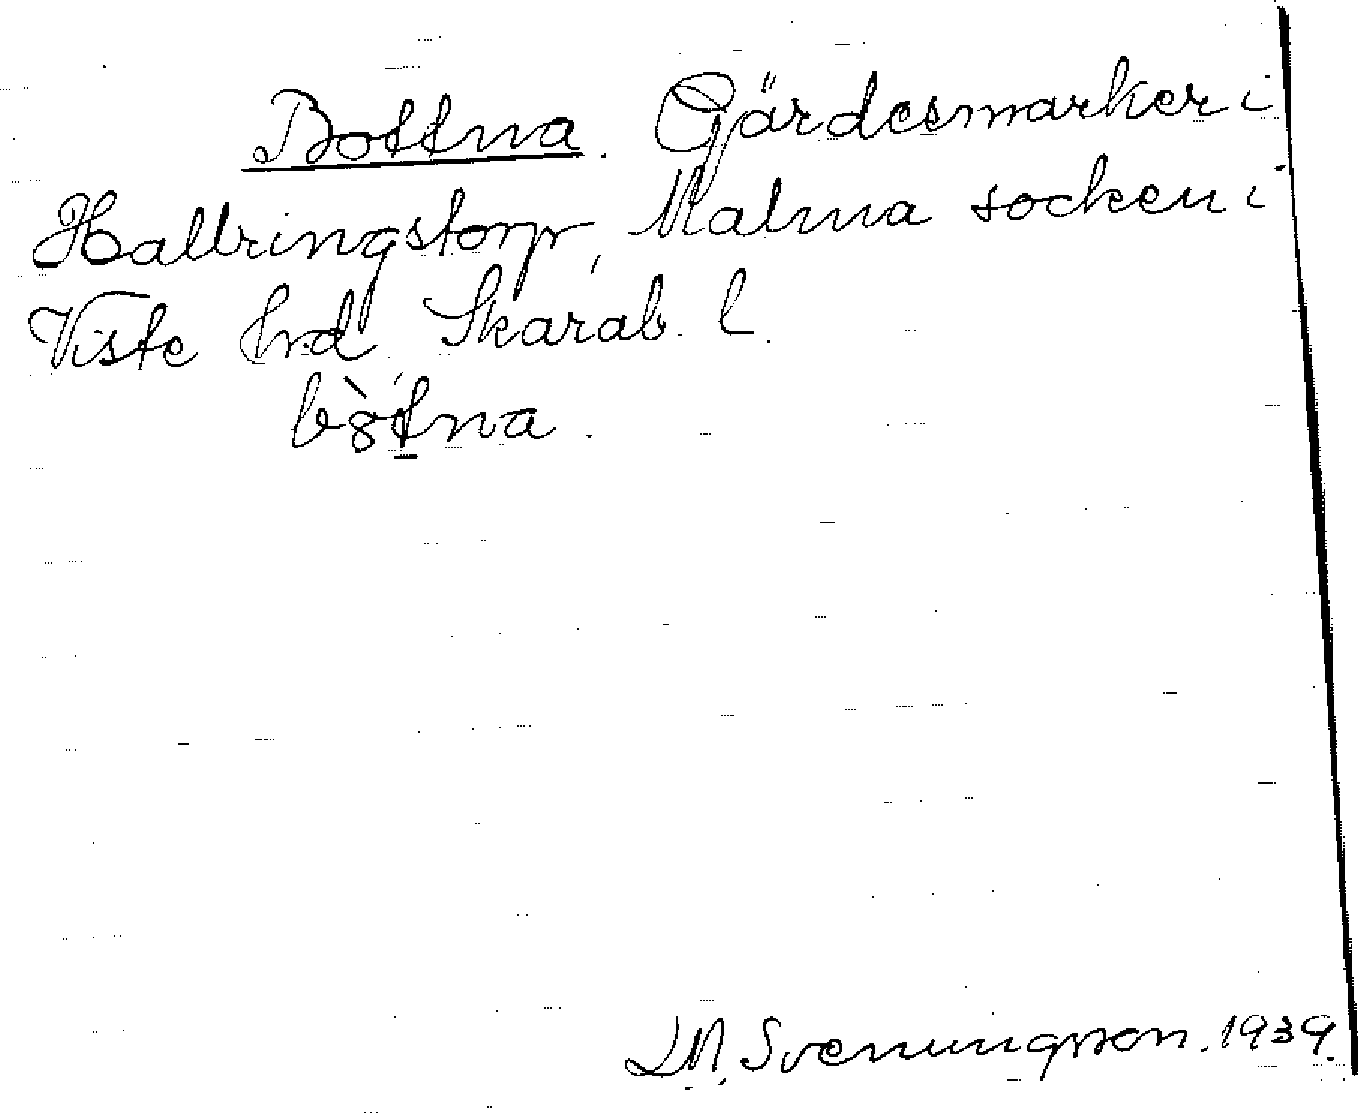 Bottna. Gärdesmarker i
Hallringstorp, Malma socken i
Viste hrd. Skarab. l.
bòtna.
L.M. Svenungsson. 1939.